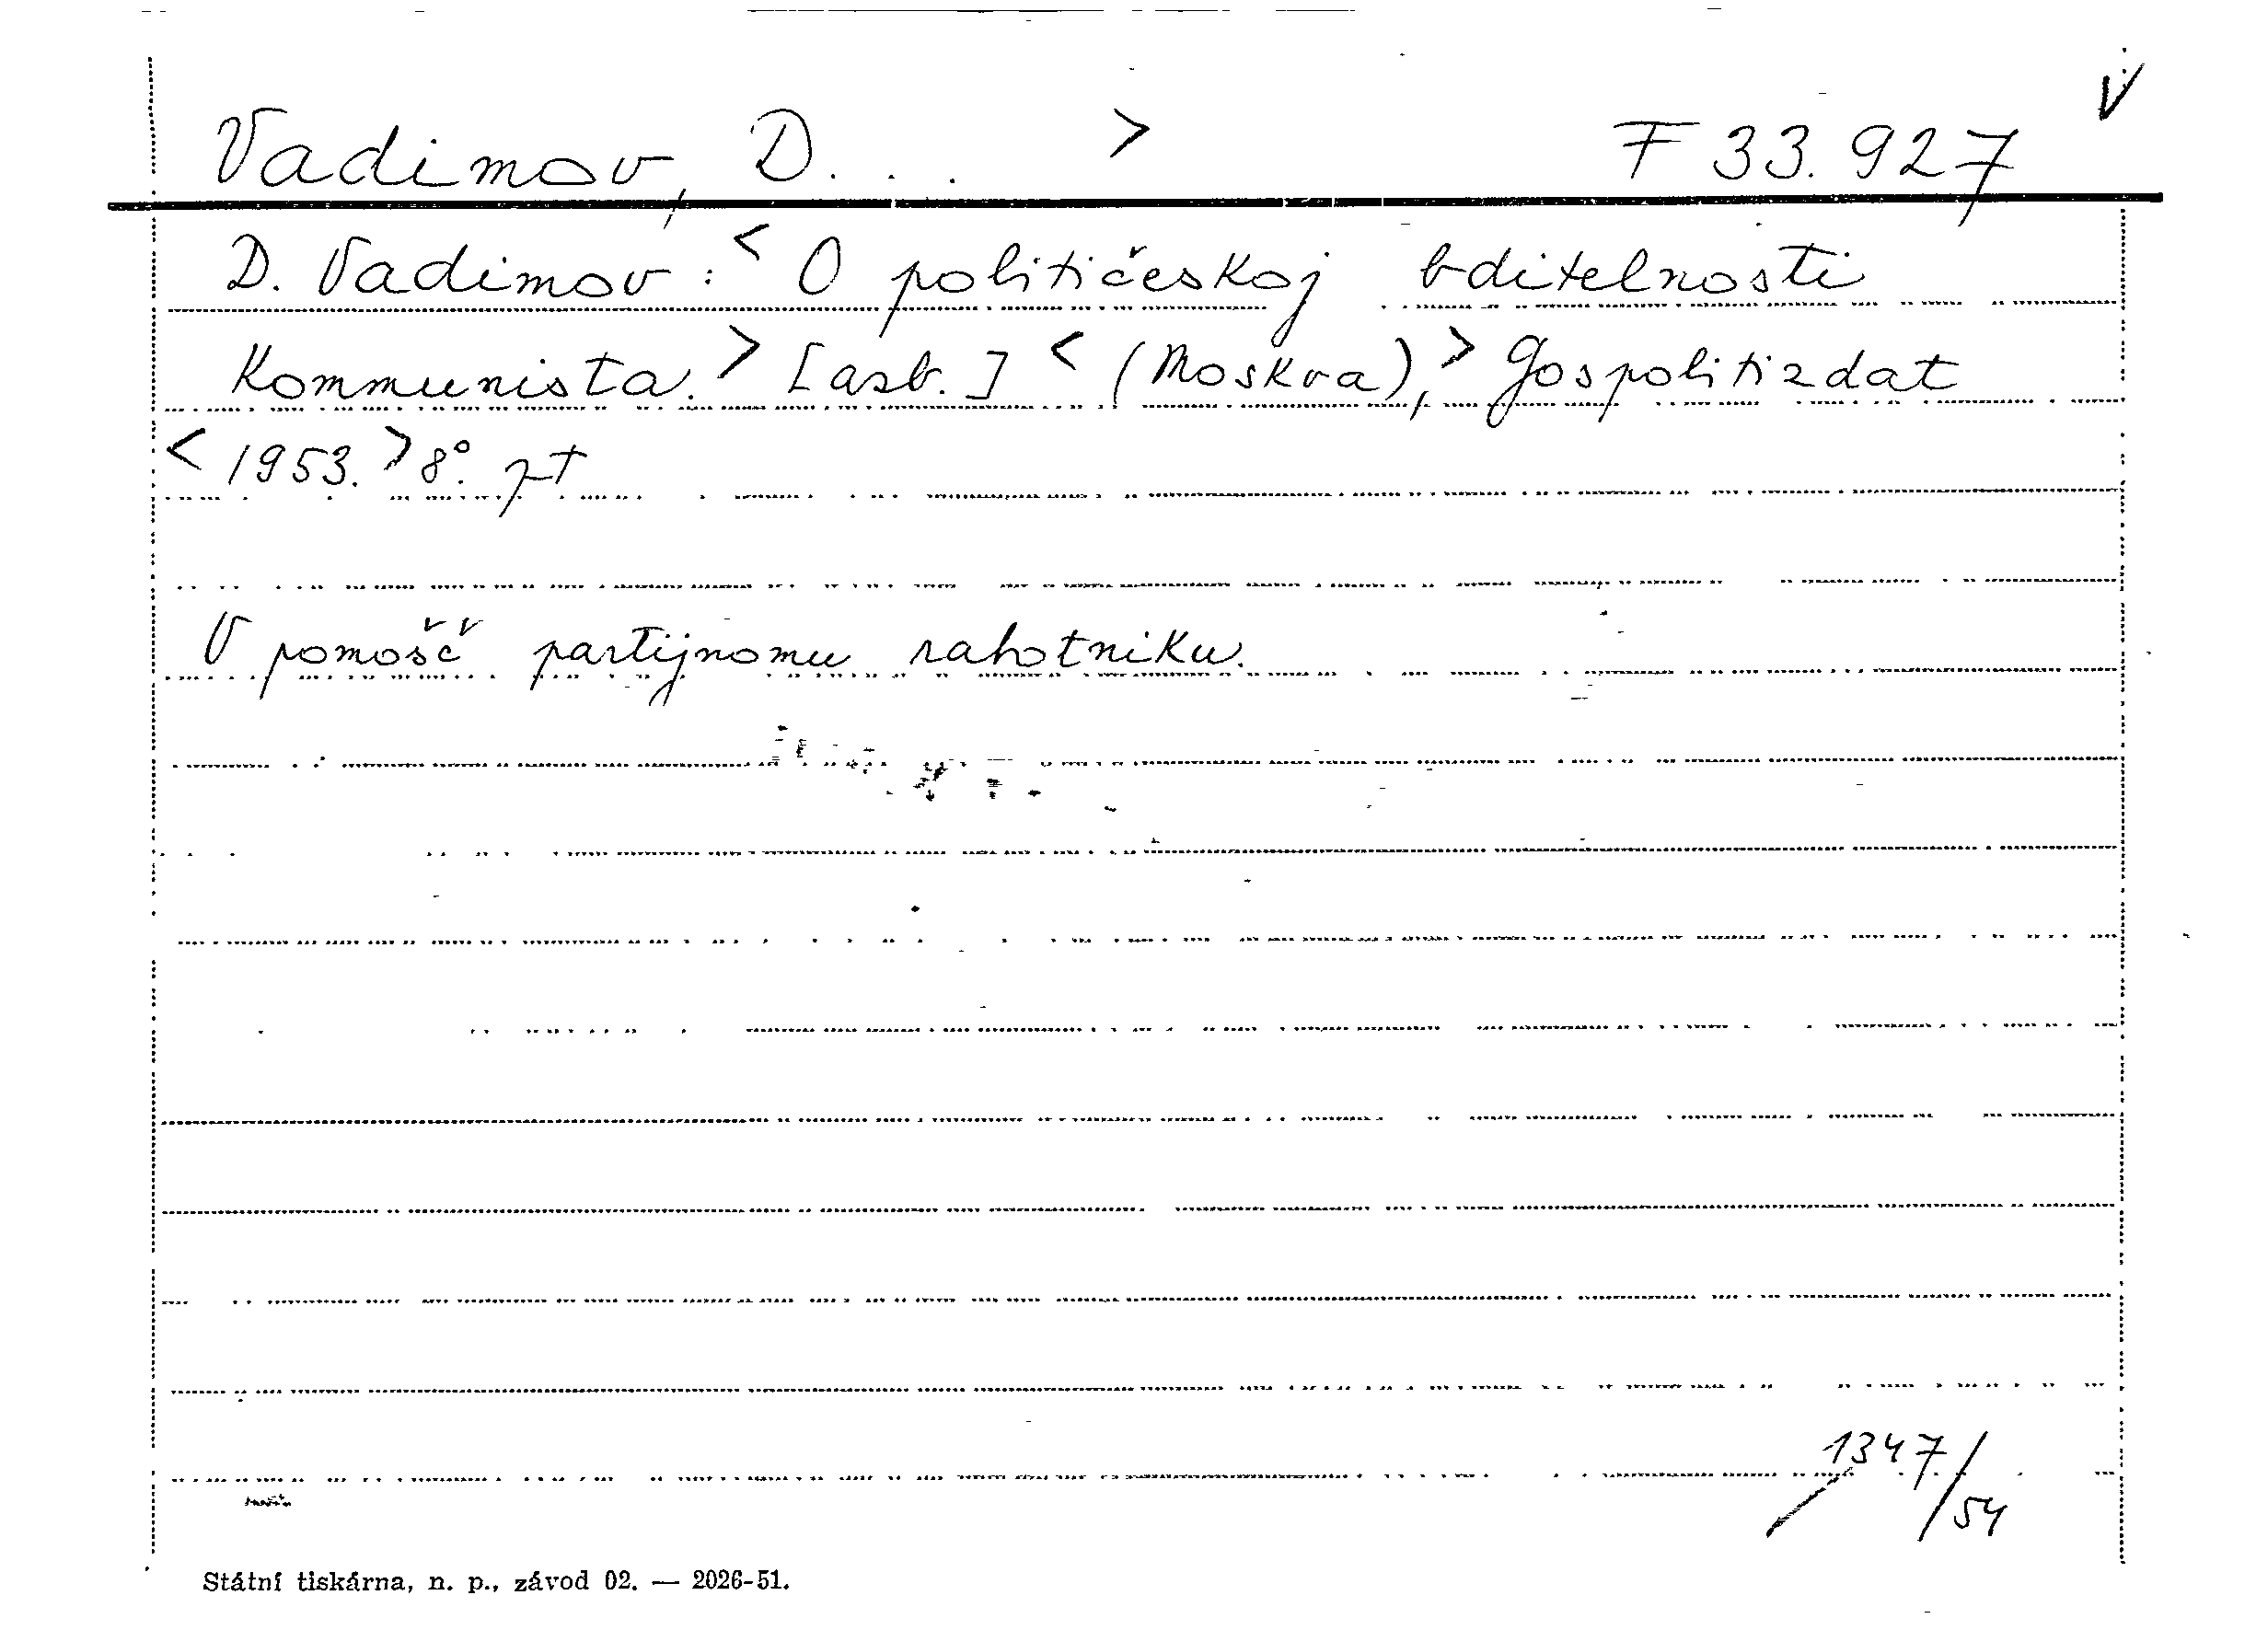 V
Vadimov, D. . . > F 33.927
D. Vadimov: < O političeskoj bditelnosti
Kommunista. > [azb.] < (Moskva), > Gospolitizdat
< 1953. > 8°. pt
V pomošč partijnomu rabotniku.
1347/54
Státní tiskárna, n. p., závod 02. — 2026-51.